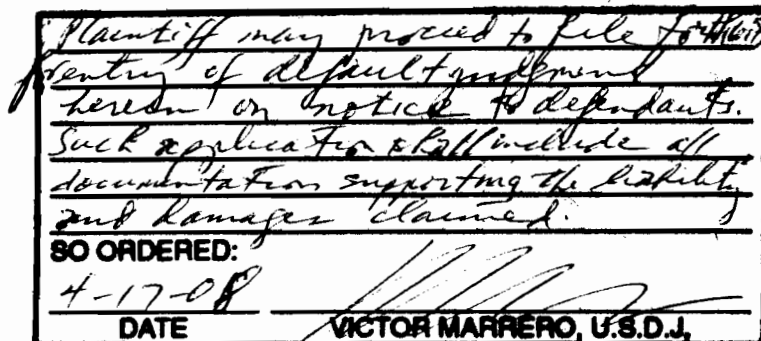 Plaintiff may proceed to file forthwith
for entry of default judgment
herein on notice to defendants.
Such application shall include all
documentation supporting the liability
and damages claimed.
SO ORDERED:
4-17-08
DATE VICTOR MARRERO, U.S.D.J.